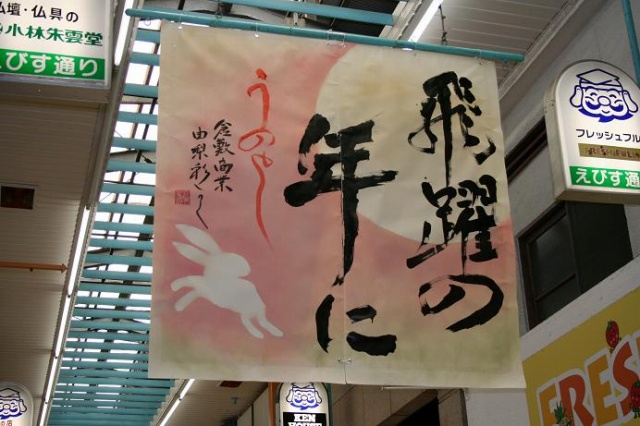 飛躍の
年に
うのとし
倉敷商業
仏壇・仏具の
小林朱雲堂
えびす通り
フレッシュフル
えびす通
FRES
KEN
HOUSE